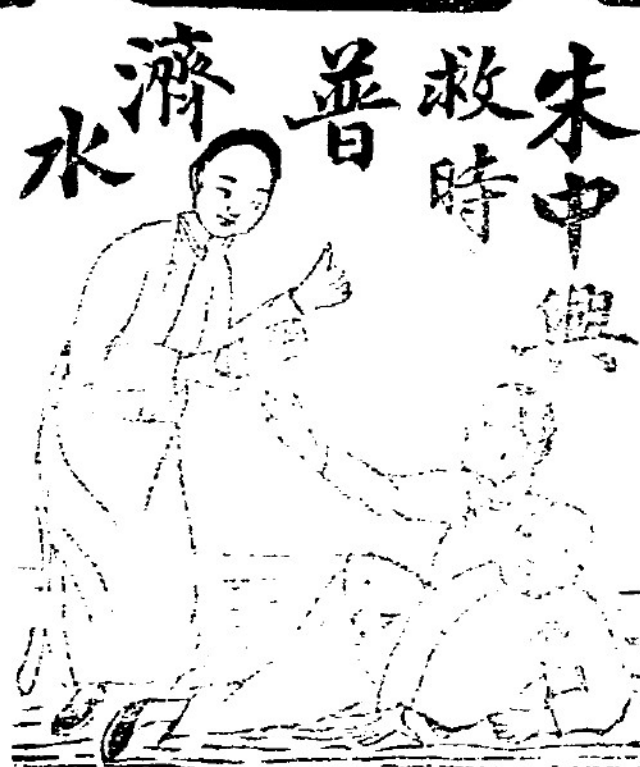 朱中興
救時
普濟水